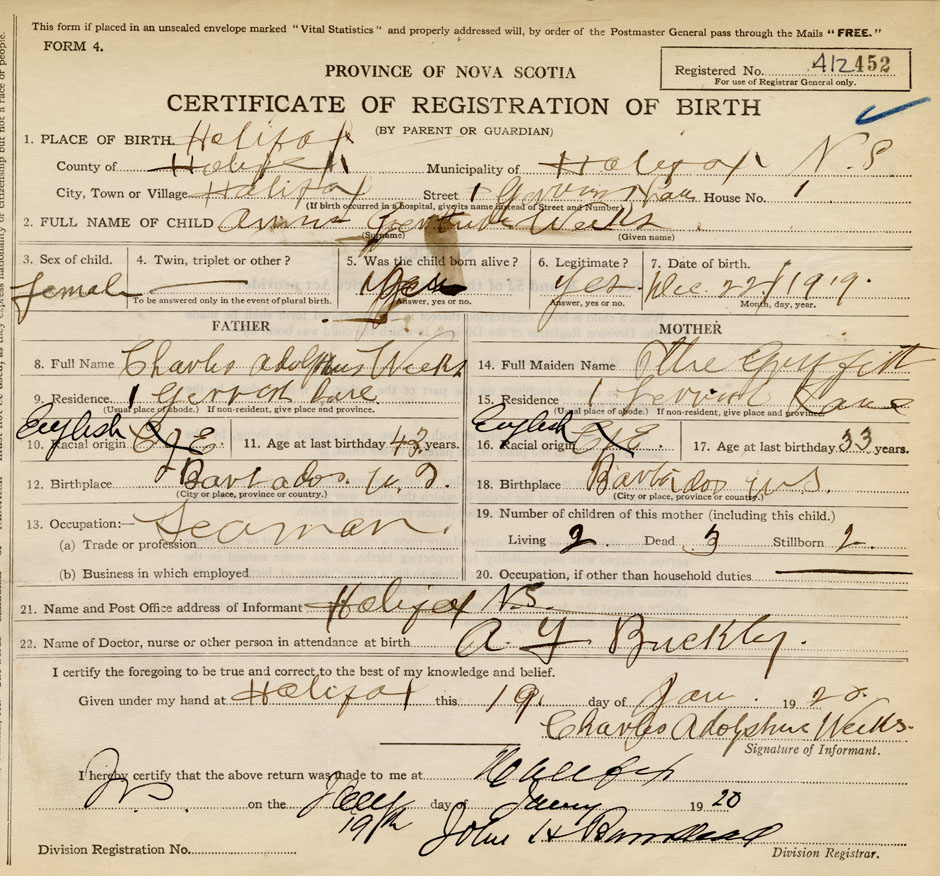 This form if placed in an unsealed envelope marked "Vital Statistics" and properly addressed will, by order of the Postmaster General pass through the Mails "FREE."
FORM 4.
PROVINCE OF NOVA SCOTIA
Registered No. 412452
For use of Registrar General only.
CERTIFICATE OF REGISTRATION OF BIRTH
(BY PARENT OR GUARDIAN)
1. PLACE OF BIRTH. Halifax
County of Halifax Municipality of Halifax N.S.
City, Town or Village Halifax Street 1 House No. 1
(If birth occurred in a hospital, give its name instead of Street and Number)
2. FULL NAME OF CHILD Annie Gertrude Weeks
(Surname) (Given name)
3. Sex of child. 4. Twin, triplet or other? 5. Was the child born alive? 6. Legitimate? 7. Date of birth.
female Yes yes Dec. 22/1919.
To be answered only in the event of plural birth. Answer, yes or no. Answer, yes or no. Month, day, year.
FATHER MOTHER
8. Full Name Charles Adolphus Weeks 14. Full Maiden Name Griffith
9. Residence. 1 15. Residence 1
(Usual place of abode.) If non-resident, give place and province. (Usual place of abode.) If non-resident, give place and province.
English English
10. Racial origin 11. Age at last birthday 43 years. 16. Racial origin 17. Age at last birthday 33 years.
12. Birthplace Barbados 18. Birthplace Barbados
(City or place, province or country.) (City or place, province or country.)
13. Occupation:— Seaman. 19. Number of children of this mother (including this child.)
(a) Trade or profession Living 2 Dead 3 Stillborn 2
(b) Business in which employed 20. Occupation, if other than household duties
21. Name and Post Office address of Informant Halifax N.S.
22. Name of Doctor, nurse or other person in attendance at birth A. Y Buckley.
I certify the foregoing to be true and correct to the best of my knowledge and belief.
Given under my hand at Halifax this 19 day of Jan. 1920.
Charles Adolphus Weeks.
Signature of Informant.
I hereby certify that the above return was made to me at Halifax
N.S. on the day of 1920
19th John H
Division Registration No. Division Registrar.